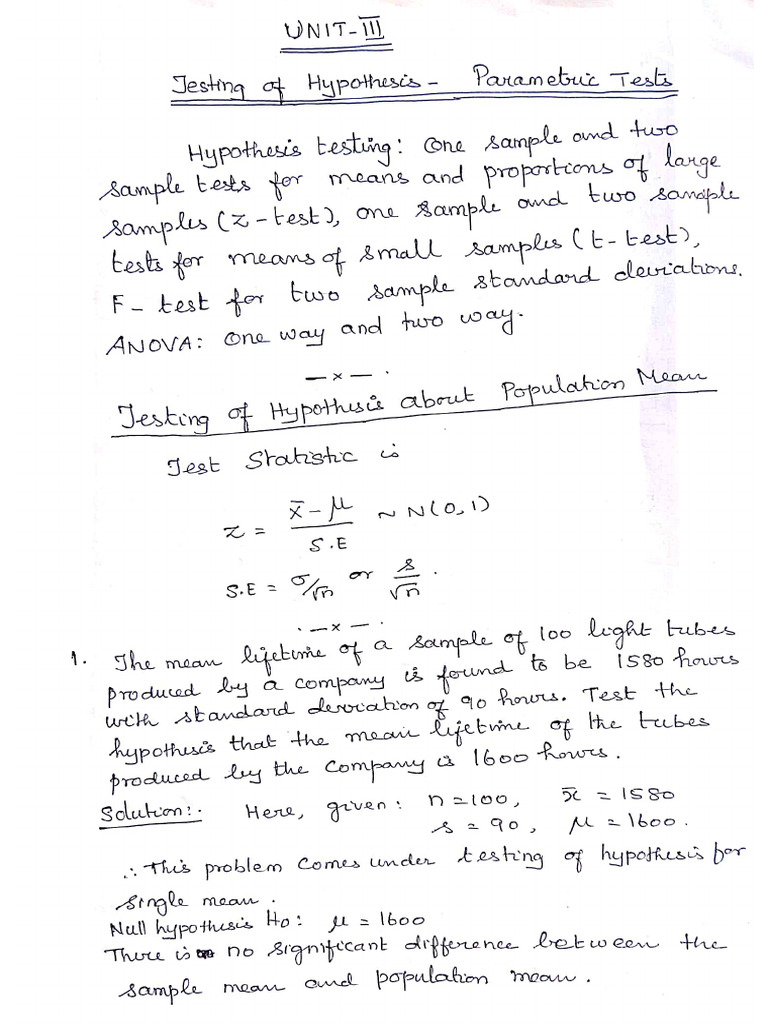 UNIT-III
Testing of Hypothesis - Parametric Tests
Hypothesis testing: One sample and two
sample tests for means and proportions of large
samples (z-test), one sample and two sample
tests for means of small samples (t-test),
F-test for two sample standard deviations.
ANOVA: One way and two way.
—x— .
Testing of Hypothesis about Population Mean
Test Statistic is
z = (x̄ - μ)/S.E ~ N(0,1)
S.E = σ/√n or s/√n .
. —x— .
1. The mean lifetime of a sample of 100 light tubes
produced by a company is found to be 1580 hours
with standard deviation of 90 hours. Test the
hypothesis that the mean lifetime of the tubes
produced by the company is 1600 hours.
Solution:. Here, given: n=100, x̄ = 1580
s = 90, μ = 1600.
∴ This problem comes under testing of hypothesis for
single mean.
Null hypothesis H0: μ = 1600
There is no significant difference between the
sample mean and population mean.